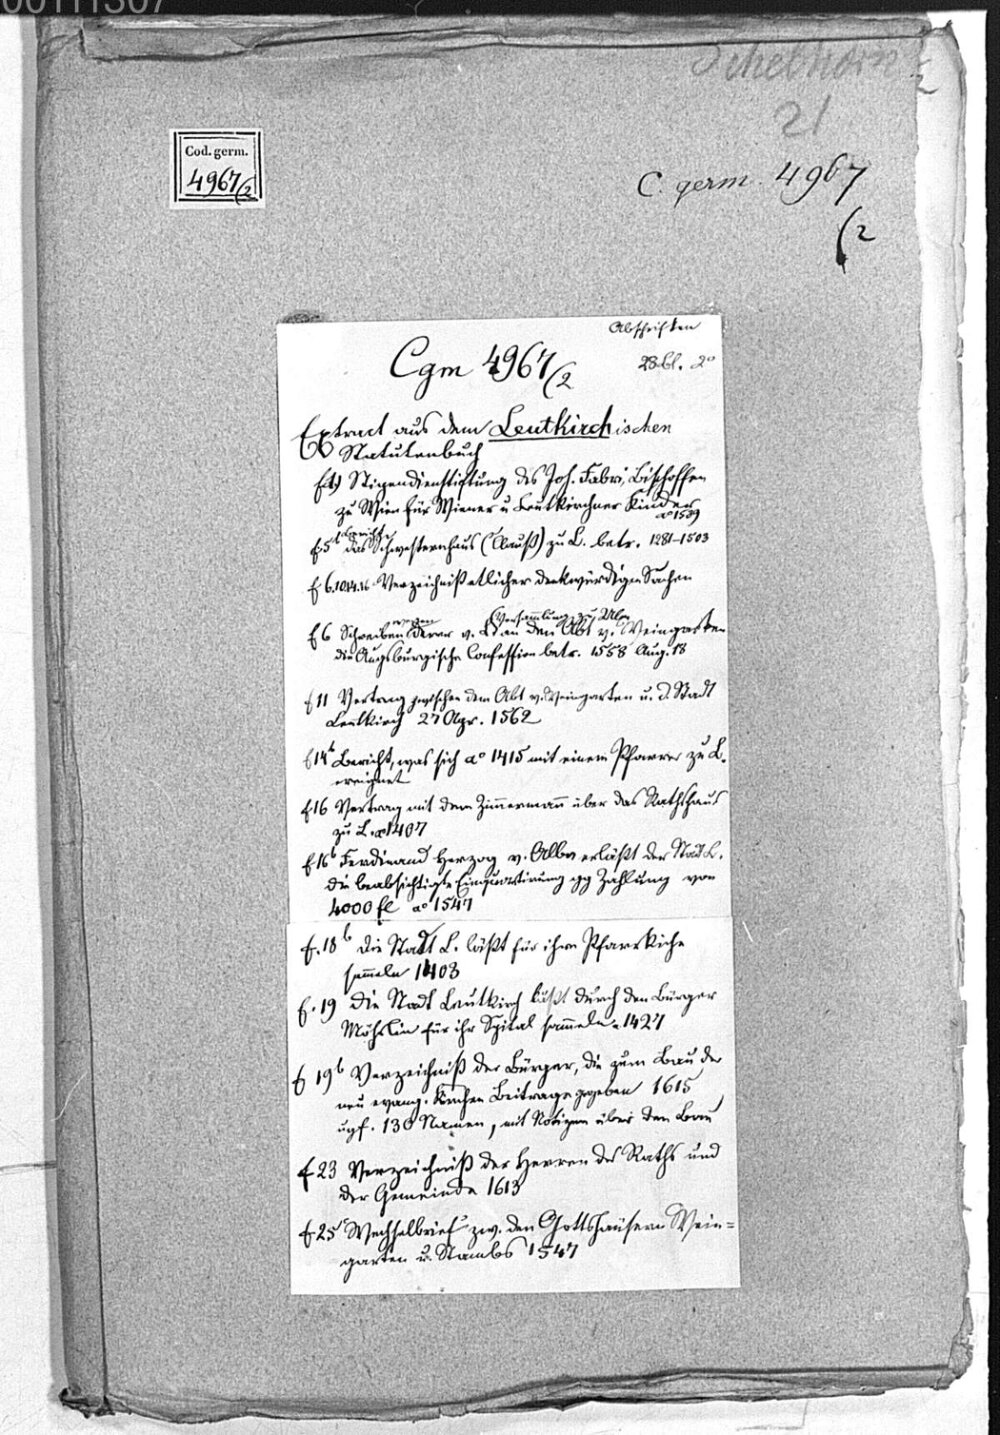 00111307
Schelhorn
21
Cod. germ.
4967/2
C. germ. 4967
(2
Abschriften
Cgm 4967/2
28 bl. 2°
Extract aus dem Leutkirchischen
Statutenbuch
f. 1) Stipendienstiftung des Joh. Fabri, Bischoffen
zu Wien für Wiener u. Leutkircher Kinder
a° 1539
f. 5 das Schwesternhaus (Clauß) zu L. betr. 1281-1503
f 6.10.14.16 Verzeichniß etlicher denkwürdigen Sachen
f 6 Schreiben derer v. L. an den Abt v. Weingarten
wegen Versammlung zu Ulm
die Augsburgische Confession betr. 1558 Aug. 18
f 11 Vertrag zwischen dem Abt v. Weingarten u. d. Stadt
Leutkirch 27 Apr. 1562
f 14b Bericht, was sich a° 1415 mit einem Pfarrer zu L.
ereignet
f 16 Vertrag mit dem Zimmermann über das Rathshaus
zu L. a° 1407
f 16b Ferdinand Herzog v. Alba erläßt der Stadt L.
die beabsichtigte Einquartirung gg Zahlung von
4000 fl a° 1547
f. 18b die Stadt L. läßt für ihre Pfarrkirche
sammeln 1403
f. 19 die Stadt Leutkirch läßt durch den Bürger
Möhrlin für ihr Spital sammeln 1427
f 19b Verzeichniß der Bürger, die zum Bau der
neu evang. Kirchen Beitrage gegeben 1615
ugf. 130 Namen, mit Notizen über den Bau
f 23 Verzeichniß der Herren des Raths und
der Gemeinde 1613
f 25 Wechselbrief zw. den Gottshäusern Wein=
garten u. Stambs 1547